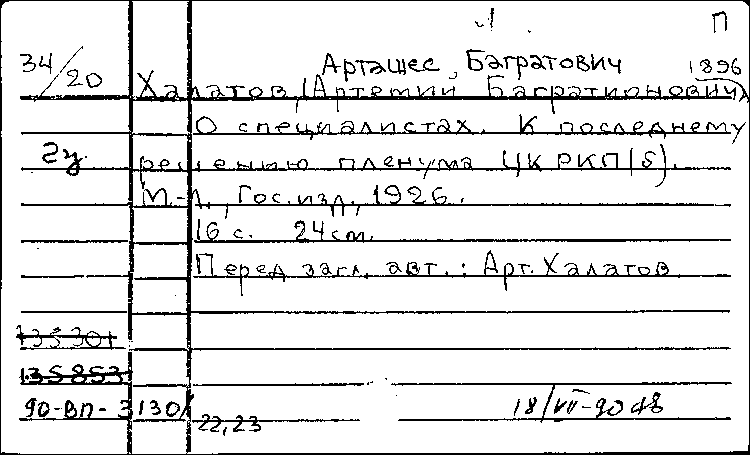 П
34/20 Арташес Багратович 1896
Халатов, (Артемий Багратионович)
О специалистах. К последнему
решению пленума ЦК РКП(б).
М.-Л., Гос. изд., 1926.
16 с. 24 cm.
Перед загл. авт.: Арт. Халатов
135301
135853
90-ВП-3130/
22,23
18/VII-90